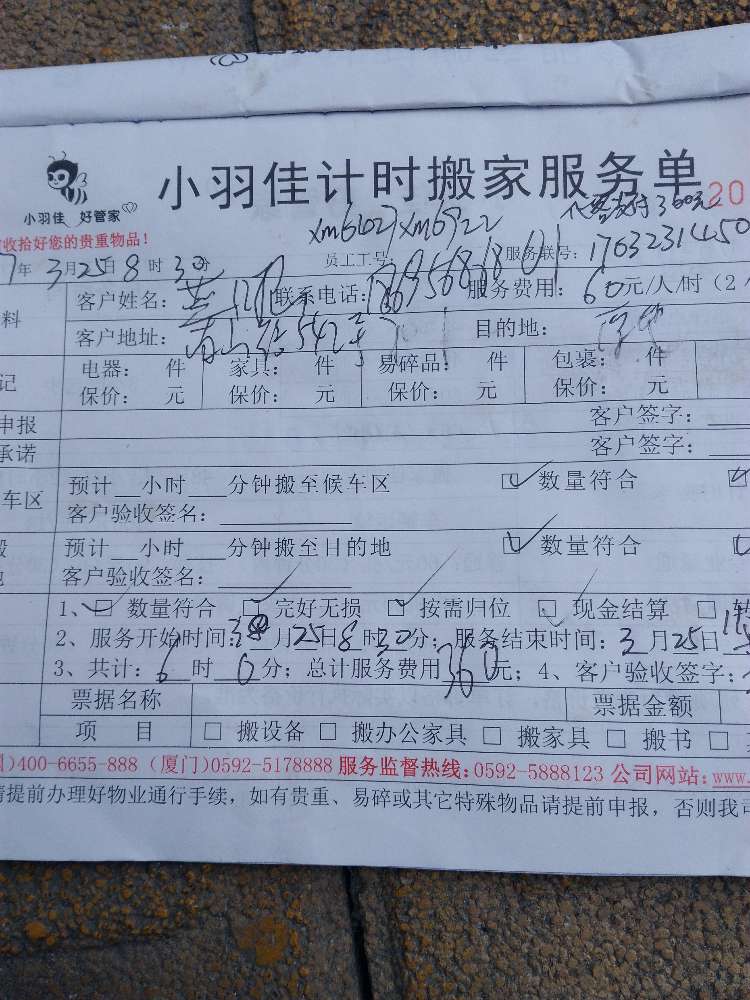 小羽佳计时搬家服务单 20
小羽佳 好管家
收拾好您的贵重物品！
员工工号： xm6102 xm6922 服务联号：1703231450
7年3月25日8时30分
客户姓名： 联系电话： 服务费用：60元/人/时（2
料
客户地址： 542号 目的地：
电器： 件 家具： 件 易碎品： 件 包裹： 件
记
保价： 元 保价： 元 保价： 元 保价： 元
申报 客户签字：
承诺 客户签字：
预计__小时___分钟搬至候车区 数量符合
车区
客户验收签名：
预计__小时___分钟搬至目的地 数量符合
客户验收签名：
1、□ 数量符合 □ 完好无损 □ 按需归位 □ 现金结算
2、服务开始时间：3月25日8时30分；服务结束时间：3月25日
3、共计：6时0分；总计服务费用360元；4、客户验收签字：
票据名称 票据金额
项 目 □ 搬设备 □ 搬办公家具 □ 搬家具 □ 搬书 □
)400-6655-888（厦门)0592-5178888 服务监督热线:0592-5888123 公司网站:www.
请提前办理好物业通行手续，如有贵重、易碎或其它特殊物品请提前申报，否则我司